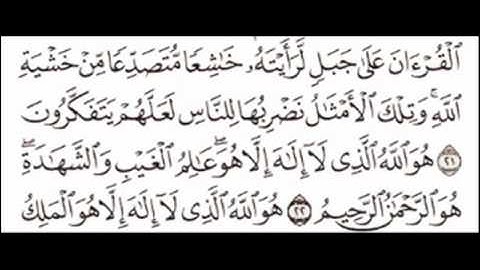 ٱلۡقُرۡءَانَ عَلَىٰ جَبَلٖ لَّرَأَيۡتَهُۥ خَٰشِعٗا مُّتَصَدِّعٗا مِّنۡ خَشۡيَةِ
ٱللَّهِۚ وَتِلۡكَ ٱلۡأَمۡثَٰلُ نَضۡرِبُهَا لِلنَّاسِ لَعَلَّهُمۡ يَتَفَكَّرُونَ
٢١ هُوَ ٱللَّهُ ٱلَّذِي لَآ إِلَٰهَ إِلَّا هُوَۖ عَٰلِمُ ٱلۡغَيۡبِ وَٱلشَّهَٰدَةِۖ
هُوَ ٱلرَّحۡمَٰنُ ٱلرَّحِيمُ ٢٢ هُوَ ٱللَّهُ ٱلَّذِي لَآ إِلَٰهَ إِلَّا هُوَ ٱلۡمَلِكُ